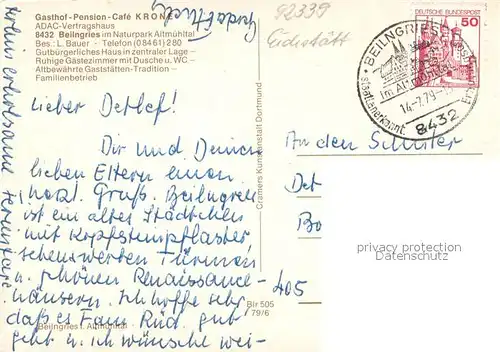 Gasthof-Pension-Café KRON
ADAC-Vertragshaus
8432 Beilngries im Naturpark Altmühltal
Bes.: L. Bauer · Telefon (08461) 280
Gutbürgerliches Haus in zentraler Lage –
Ruhige Gästezimmer mit Dusche u. WC –
Altbewährte Gaststätten-Tradition –
Familienbetrieb
92339
Eichstätt
DEUTSCHE BUNDESPOST
50
BEILNGRIES
im Altmühltal
14-7.79
staatl. anerkannt
8432
Lieber Detlef!
Dir und Deinen
lieben Eltern einen
herzl. Gruß. Beilngries
ist ein altes Städtchen
mit Kopfsteinpflaster
sehenswerten Türmen
u. schönen Renaissance-
häusern. Ich hoffe sehr,
daß es Fam. Rüd. gut
geht u. ich wünsche wei-
terhin erholsame Ferientage.
Cramers Kunstanstalt Dortmund
An den Schüler
Det
Bo
405
Blr 505
79/6
Beilngries i. Altmühltal
privacy protection
watermark